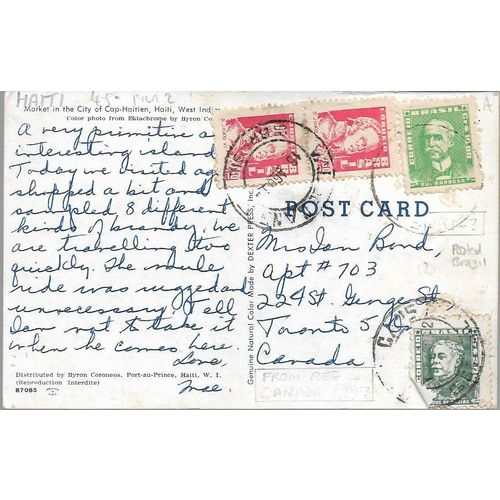 HAITI
Market in the City of Cap-Haitien, Haiti, West Indies
Color photo from Ektachrome by Byron Co
A very primitive and
interesting island
Today we visited
shopped a bit and
sampled 8 different
kinds of brandy. We
are travelling too
quickly. The mule
ride was rugged and
unnecessary. Tell
Ian not to take it
when he comes here
Love,
Mae.
Distributed by Byron Coroneos, Port-au-Prince, Haiti, W. I.
(Reproduction Interdite)
87085
Genuine Natural Color Made by DEXTER PRESS, Inc.
CORREIO
BRASIL
CORREIO
BRASIL
CORREIO
BRASIL
RUI BARBOSA
POST CARD
Brazil
Mrs Ian Bond,
Apt # 703
224 St. George St
Toronto 5
Canada
FROM
CANADA
CORREIO
BRASIL